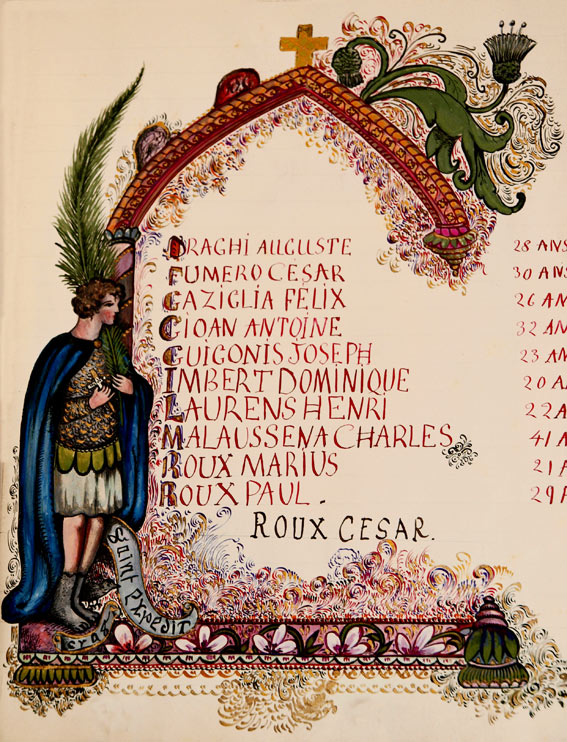 DRAGHI AUGUSTE 28 ANS
FUMERO CÉSAR 30 ANS
GAZIGLIA FÉLIX 26 AN
GIOAN ANTOINE 32 AN
GUIGONIS JOSEPH 23 AN
IMBERT DOMINIQUE 20 A
LAURENS HENRI 22 A
MALAUSSENA CHARLES 41 A
ROUX MARIUS 21
ROUX PAUL. 29
ROUX CESAR.
Saint EXPEDIT